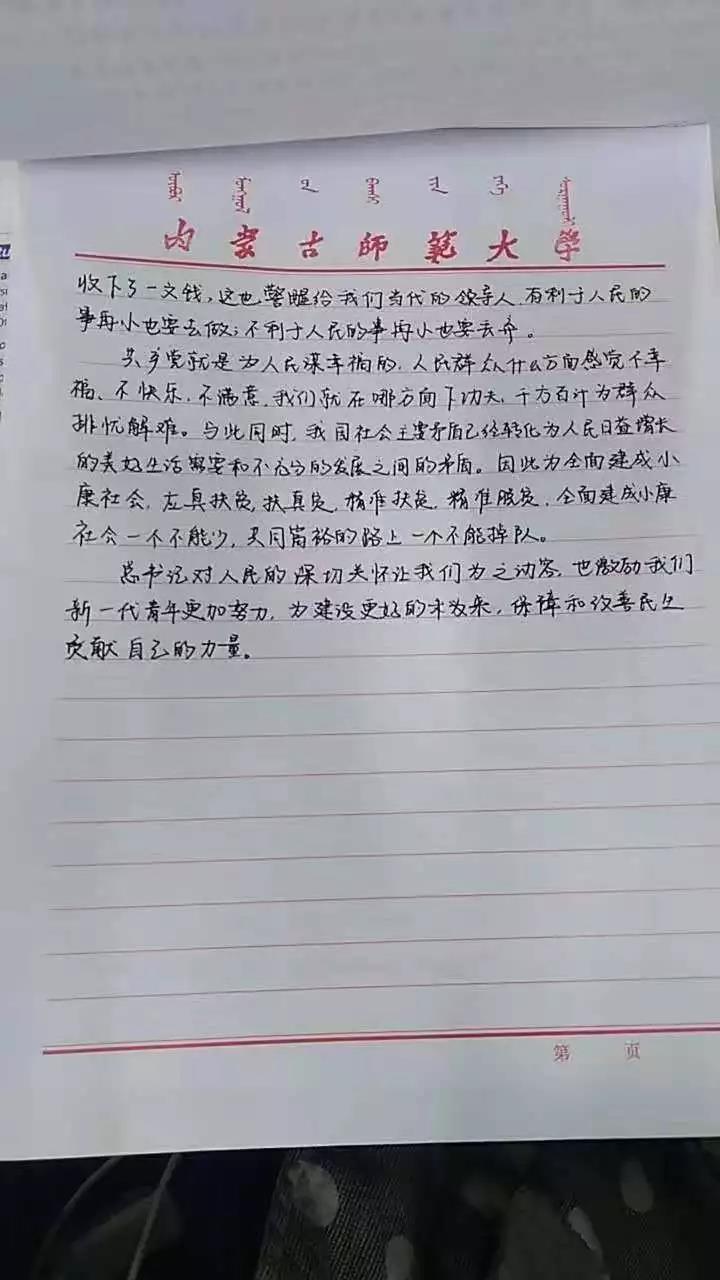 内蒙古师范大学
收下了一文钱，这也警醒给我们当代的领导人，有利于人民的
事再小也要去做；不利于人民的事再小也要丢弃。
共产党就是为人民谋幸福的，人民群众什么方面感觉不幸
福、不快乐、不满意，我们就在哪方向下功夫，千方百计为群众
排忧解难。与此同时，我国社会主要矛盾已经转化为人民日益增长
的美好生活需要和不充分的发展之间的矛盾。因此为全面建成小
康社会，在真扶贫，扶真贫，精准扶贫，精准脱贫，全面建成小康
社会一个不能少，共同富裕的路上一个不能掉队。
总书记对人民的深切关怀让我们为之动容，也激励我们
新一代青年更加努力，为建设更好的未来，保障和改善民生
贡献自己的力量。
第 页